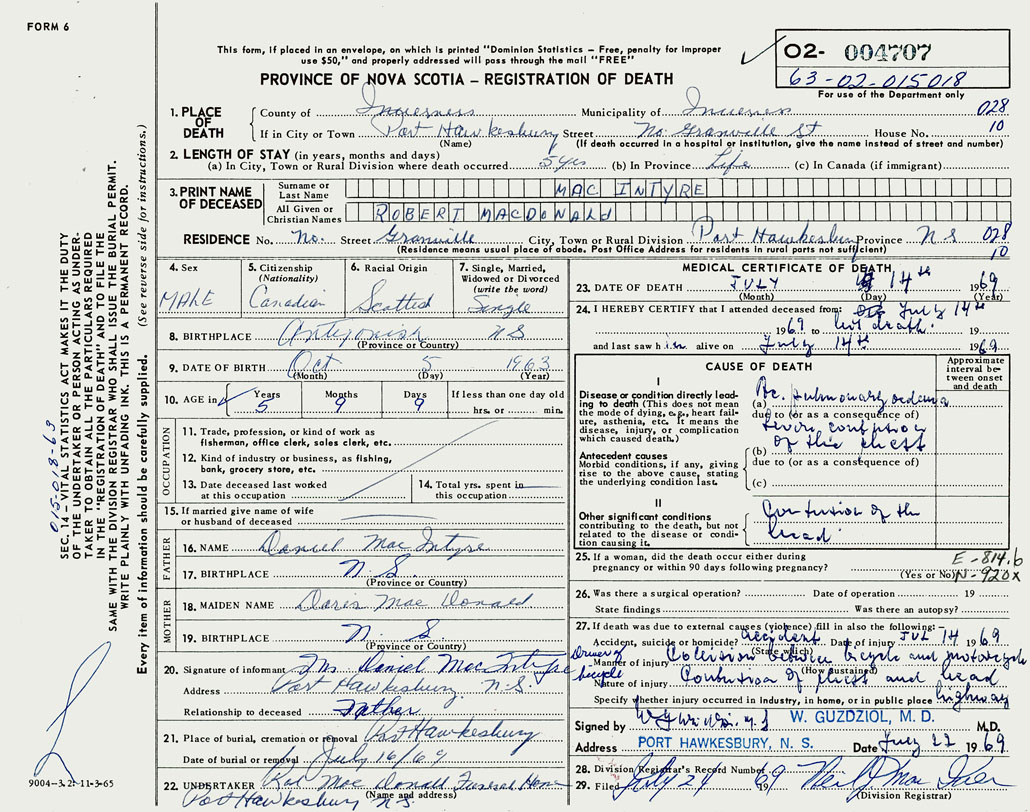 FORM 6
This form, if placed in an envelope, on which is printed "Dominion Statistics – Free, penalty for improper
use $50," and properly addressed will pass through the mail "FREE"
PROVINCE OF NOVA SCOTIA – REGISTRATION OF DEATH
O2- 004707
63-02-015018
For use of the Department only
1. PLACE OF DEATH
County of Inverness Municipality of Inverness 028
If in City or Town Port Hawkesbury Street No. Granville St House No. 10
(Name) (If death occurred in a hospital or institution, give the name instead of street and number)
2. LENGTH OF STAY (in years, months and days)
(a) In City, Town or Rural Division where death occurred 5 yrs (b) In Province Life (c) In Canada (if immigrant)
3. PRINT NAME OF DECEASED
Surname or Last Name MAC INTYRE
All Given or Christian Names ROBERT MACDONALD
RESIDENCE No. No. Street Granville City, Town or Rural Division Port Hawkesbury Province N S 028
(Residence means usual place of abode. Post Office Address for residents in rural parts not sufficient) 10
4. Sex
MALE
5. Citizenship (Nationality)
Canadian
6. Racial Origin
Scottish
7. Single, Married, Widowed or Divorced (write the word)
Single
8. BIRTHPLACE Antigonish N S
(Province or Country)
9. DATE OF BIRTH Oct 5 1963
(Month) (Day) (Year)
10. AGE in Years Months Days If less than one day old
5 9 9 hrs. or min.
OCCUPATION
11. Trade, profession, or kind of work as
fisherman, office clerk, sales clerk, etc.
12. Kind of industry or business, as fishing,
bank, grocery store, etc.
13. Date deceased last worked
at this occupation
14. Total yrs. spent in
this occupation
15. If married give name of wife
or husband of deceased
FATHER
16. NAME Daniel Mac Intyre
17. BIRTHPLACE N. S.
(Province or Country)
MOTHER
18. MAIDEN NAME Doris Mac Donald
19. BIRTHPLACE N. S.
(Province or Country)
20. Signature of informant Daniel Mac Intyre
Address Port Hawkesbury, N.S.
Relationship to deceased Father
21. Place of burial, cremation or removal Port Hawkesbury
Date of burial or removal July 16/69
22. UNDERTAKER Mac Donald Funeral Home
(Name and address)
Port Hawkesbury N.S.
MEDICAL CERTIFICATE OF DEATH
23. DATE OF DEATH JULY 14th 1969
(Month) (Day) (Year)
24. I HEREBY CERTIFY that I attended deceased from July 14th
1969 to his death. 19
and last saw him alive on July 14th 1969.
CAUSE OF DEATH
Approximate interval between onset and death
I
Disease or condition directly leading to death (This does not mean the mode of dying, e.g., heart failure, asthenia, etc. It means the disease, injury, or complication which caused death.)
(a) Ac. pulmonary oedema
due to (or as a consequence of)
Severe contusion
of the chest
Antecedent causes
Morbid conditions, if any, giving rise to the above cause, stating the underlying condition last.
(b)
due to (or as a consequence of)
(c)
II
Other significant conditions contributing to the death, but not related to the disease or condition causing it.
Contusion of the
head
25. If a woman, did the death occur either during
pregnancy or within 90 days following pregnancy?
(Yes or No)
E-814.6
N-920X
26. Was there a surgical operation? Date of operation 19
State findings Was there an autopsy?
27. If death was due to external causes (violence) fill in also the following:–
Accident, suicide or homicide? accident Date of injury JUL 14 1969
(State which)
Driver of bicycle
Manner of injury Colision between bicycle and motorcycle
(How sustained)
Nature of injury Contusion of chest and head
Specify whether injury occurred in industry, in home, or in public place highway
Signed by W. GUZDZIOL, M. D. M.D.
Address PORT HAWKESBURY, N. S. Date July 22 1969
28. Division Registrar's Record Number
29. Filed July 24 1969
(Division Registrar)
015-018-63
SEC. 14 – VITAL STATISTICS ACT MAKES IT THE DUTY
OF THE UNDERTAKER OR PERSON ACTING AS UNDER-
TAKER TO OBTAIN ALL THE PARTICULARS REQUIRED
IN THE "REGISTRATION OF DEATH" AND TO FILE THE
SAME WITH THE DIVISION REGISTRAR WHO SHALL ISSUE THE BURIAL PERMIT.
WRITE PLAINLY WITH UNFADING INK. THIS IS A PERMANENT RECORD.
Every item of information should be carefully supplied. (See reverse side for instructions.)
9004–3.2: 11-3-65